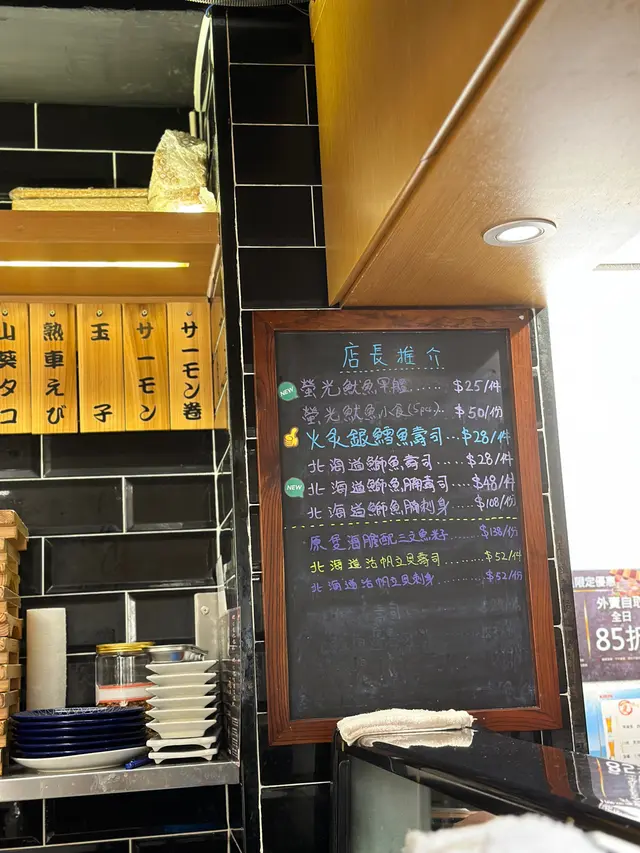 山葵タコ
熟車えび
玉子
サーモン
サーモン巻
店長推介
NEW 螢光魷魚軍艦...... $25/件
螢光魷魚小食(5pcs).. $50/份
👍 火炙銀鱈魚壽司...$28/件
北海道鰤魚壽司.....$28/件
NEW 北海道鰤魚腩壽司....$48/件
北海道鰤魚腩刺身......$108/份
原隻海膽配三文魚籽.......$138/份
北海道活帆立貝壽司.......$52/件
北海道活帆立貝刺身..........$52/份
限定優惠
外賣自取
全日
85折